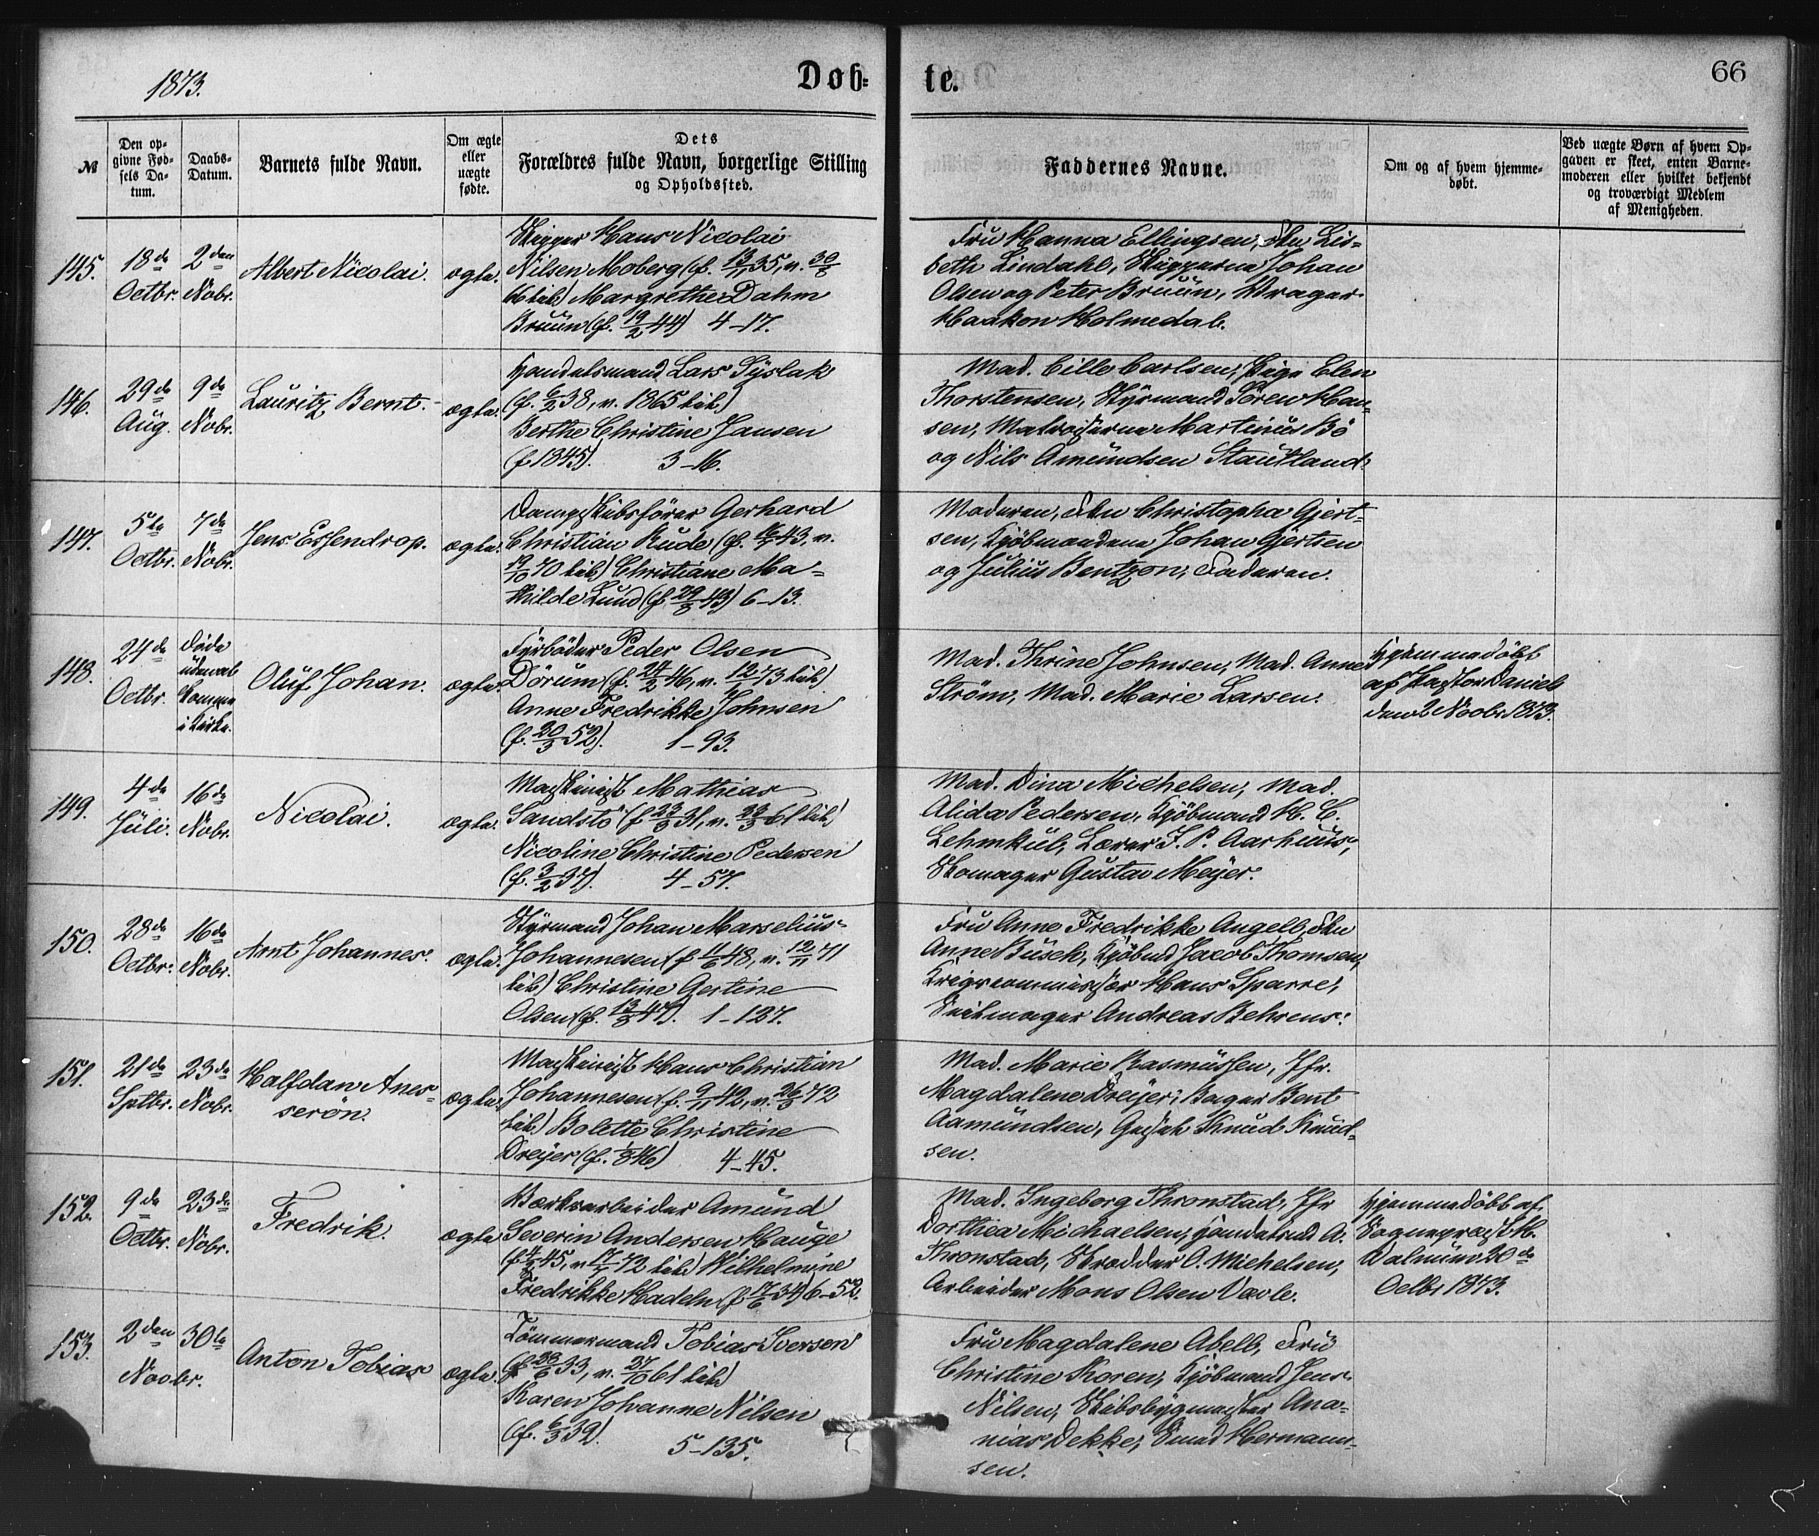 1873.
Døb-
te.
66
№
Den op-
givne Fød-
sels Da-
tum.
Daabs-
Datum.
Barnets fulde Navn.
Om ægte
eller
uægte
fødte.
Dets
Forældres fulde Navn, borgerlige Stilling
og Opholdssted.
Faddernes Navne.
Om og af hvem hjemme-
døbt.
Ved uægte Børn af hvem Op-
gaven er skeet, enten Barne-
moderen eller hvilket bekjendt
og troværdigt Medlem
af Menigheden.
145.
18de
Octbr.
2den
Nobr.
Albert Nicolai.
ægte.
Skipper Hans Nicolai
Nilsen Moberg (f. 13/11 35, v. 30/8
66 kib.) Margrethe Dahm
Bruun (f. 19/2 44) 4-17.
Fru Hanna Ellingsen, Lis-
beth Lindahl, Skipperne Johan
Olsen og Peter Bruun, Vrager
Haakon Holmedal.
146.
29de
Aug.
9de
Nobr.
Lauritz Bernt.
ægte.
Handelsmand Lars Syslak
(f. 6/2 38, v. 1865 kib.)
Berthe Christine Jansen
(f. 1845). 3-16.
Mad. Cille Carlsen, Pige Elen
Thorstensen, Styrmand Sören Han-
sen, Matroserne Martinus Bö
og Nils Amundsen Stautland.
147.
5te
Octbr.
7de
Nobr.
Jens Essendrop.
ægte.
Dampskibsförer Gerhard
Christian Rude (f. 43, v.
19/10 70 kib.) Christiane Ma-
thilde Lund (f. 29/8 43) 6-13.
Moderen, Christopha Gjert-
sen, Kjöbmændene Johan Gjertsen
og Julius Bentzon, Faderen.
148.
24de
Octbr.
Döde
udenat
komme
i Kirke.
Oluf Johan.
ægte.
Fyrböder Peder Olsen
Dörum (f. 24/2 46, v. 12/1 73 kib.)
Anne Fredrikke Johnsen
(f. 20/3 52). 1-93.
Mad. Thrine Johnsen, Mad. Anne
Ström, Mad. Marie Larsen.
Hjemmedöbt
af Pastor Daniel
den 2 Novbr 1873.
149.
4de
Juli.
16de
Nobr.
Nicolai.
ægte.
Maskinist Mathias
Sandstö (f. 23/3 31, v. 61 kib.)
Nicoline Christine Pedersen
(f. 3/2 37). 4-57.
Mad. Dina Michelsen, Mad.
Alida Pedersen, Kjöbmand H. C.
Lehmkul, Lærer J. P. Aarhuus,
Skomager Gustav Meyer.
150.
28de
Octbr.
16de
Nobr.
Arnt Johannes.
ægte.
Styrmand Johan Marselius
Johannesen (f. 11/6 48, v. 12/11 71
kib.) Christine Gertine
Olsen (f. 13/3 47). 1-127.
Fru Anne Fredrikke Angell,
Anne Busch, Kjöbmd Jacob Thomsen,
Krigscommissær Hans Sparre,
Seilmager Andreas Behrens.
151.
21de
Sptbr.
23de
Nobr.
Halfdan Aner-
serön.
ægte.
Maskinist Hans Christian
Johannesen (f. 9/11 42, v. 26/3 72
kib.) Bolette Christine
Dreyer (f. 46) 4-45.
Mad. Marie Rasmussen, Jfr.
Magdalene Dreyer, Bager Bent
Aamundsen, Knud Knud-
sen.
152.
9de
Octbr.
23de
Nobr.
Fredrik.
ægte
Værksarbeider Amund
Severin Andersen Hauge
(f. 45, v. 17/5 72 kib.) Wilhelmine
Fredrikke Hadeln (f. 17/6 34) 6-52.
Mad. Ingeborg Thronstad, Jfr
Dorthea Michaelsen, Handelsmd A.
Thronstad, Skrædder O. Michelsen,
Arbeider Mons Olsen Davle.
Hjemmedöbt af
Sognepræst H.
Walnum 20de
Octbr 1873.
153.
2den
Novbr.
30te
Anton Tobias
ægte.
Tömmermand Tobias Iversen
(f. 23/6 33, v. 27/10 61 kib.)
Karen Johanne Nilsen
(f. 6/3 39). 5-135.
Fru Magdalene Abell, Fru
Christine Koren, Kjöbmand Jens
Nilsen, Skibsbygmester Ana-
nias Dekke, Smed Hermann-
sen.